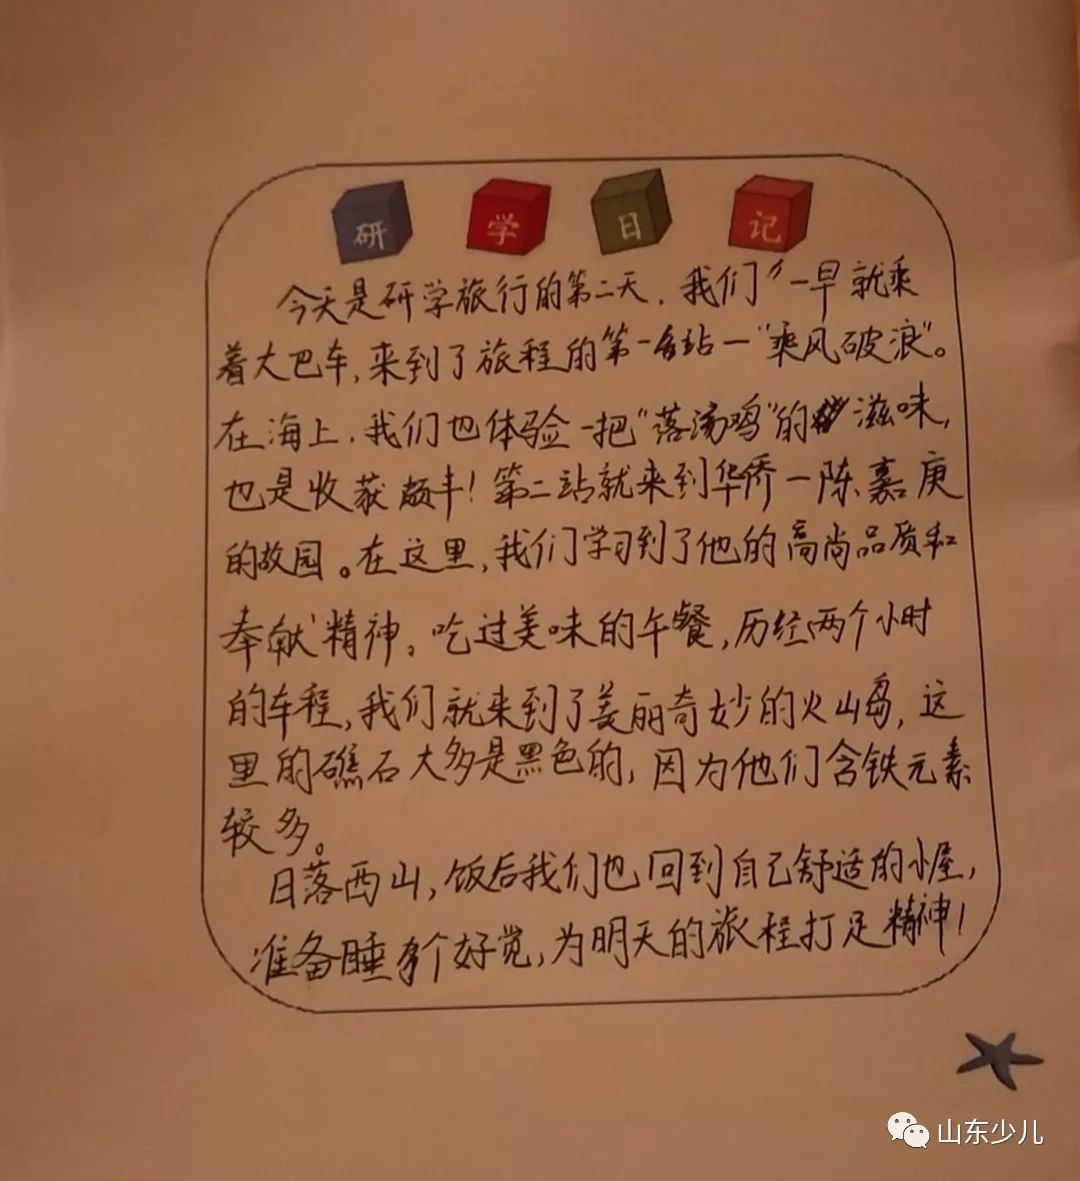 研学日记
今天是研学旅行的第二天，我们一早就乘
着大巴车，来到了旅程的第一站一“乘风破浪”。
在海上，我们也体验一把“落汤鸡”的滋味，
也是收获颇丰！第二站就来到华侨一陈嘉庚
的故园。在这里，我们学习到了他的高尚品质和
奉献精神。吃过美味的午餐，历经两个小时
的车程，我们就来到了美丽奇妙的火山岛，这
里的礁石大多是黑色的，因为他们含铁元素
较多。
日落西山，饭后我们也回到自己舒适的小屋，
准备睡个好觉，为明天的旅程打足精神！
山东少儿